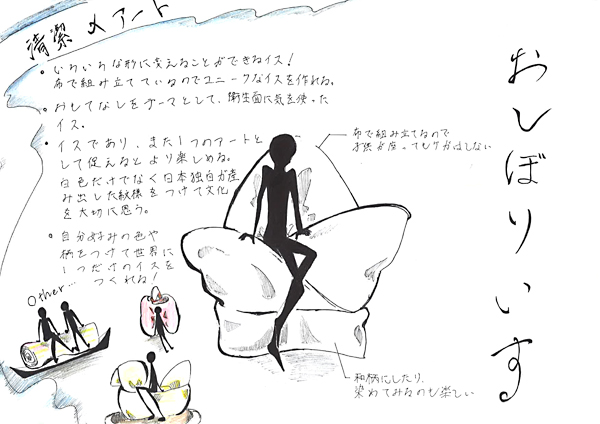 清潔 × アート
・いろいろな形に変えることができるイス！
布で組み立てているのでユニークなイスを作れる。
・おもてなしをテーマとして、衛生面に気を使った
イス。
・イスであり、また1つのアートと
して捉えるとより楽しめる。
白色だけでなく日本独自が産
み出した紋様をつけて文化
を大切に思う。
・自分好みの色や
柄をつけて世界に
1つだけのイスを
つくれる！
Other...
布で組み立てるので
子供が座ってもケガはしない
和柄にしたり、
染めてみるのも楽しい
おしぼりいす